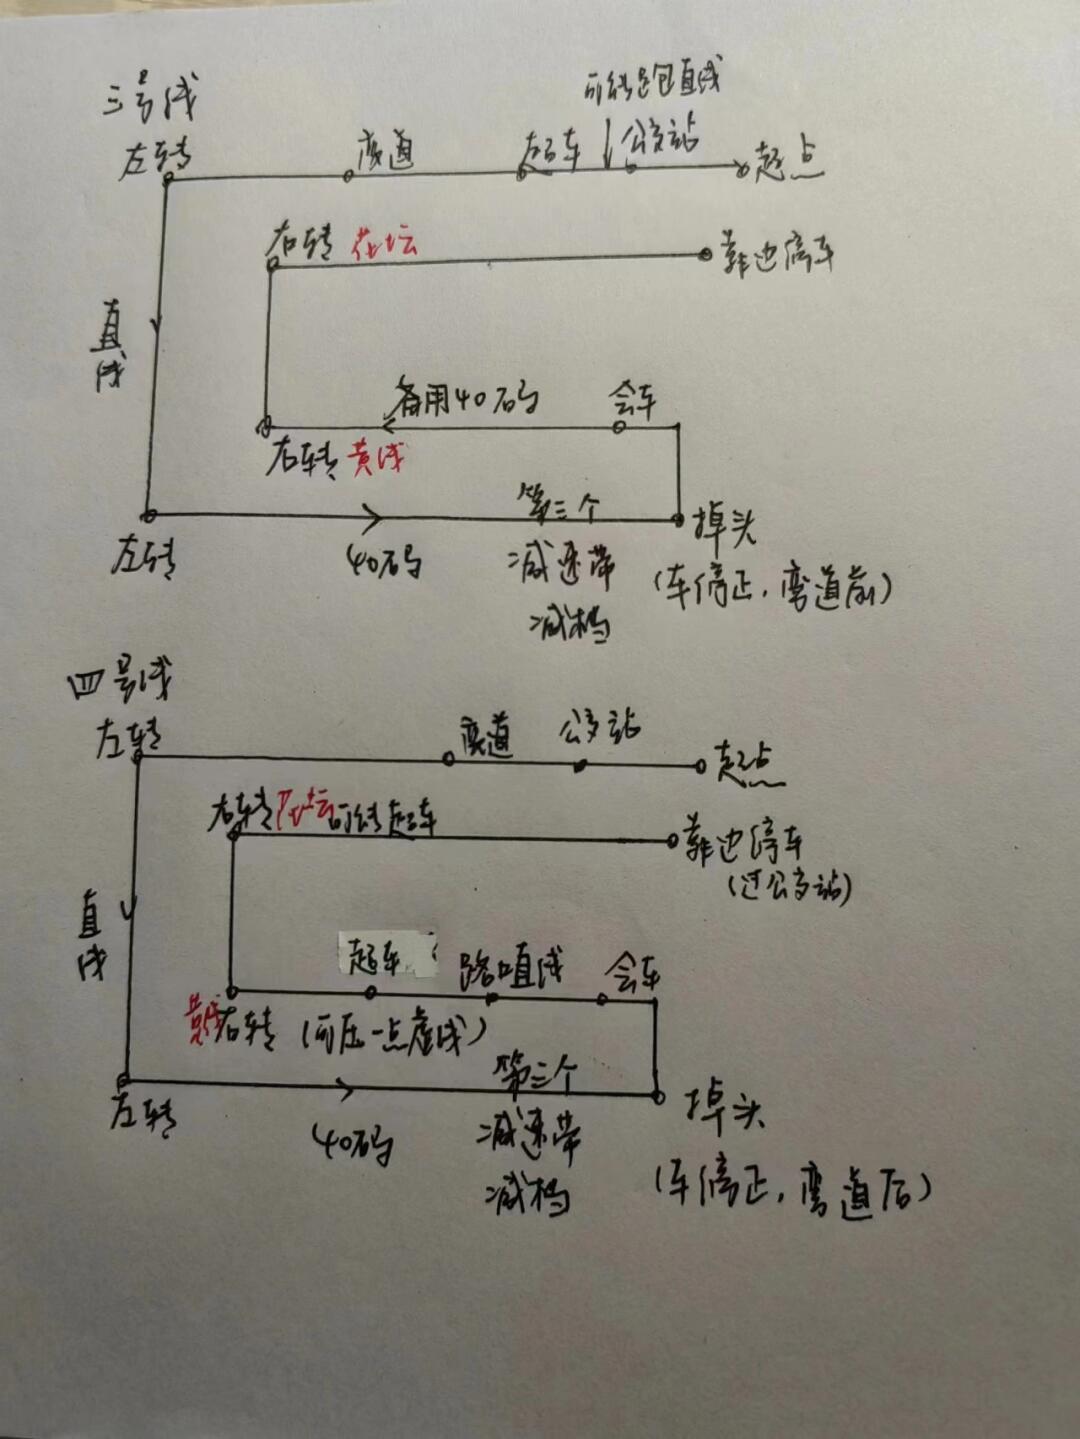 三号线
可能是包直线
左转
变道
超车
公交站
起点
右转 花坛
靠边停车
直线
备用40码
会车
右转 黄线
左转
40码
第三个
减速带
减档
掉头
(车停正,弯道前)
四号线
左转
变道
公交站
起点
右转 花坛 可能超车
靠边停车
(过公交站)
直线
超车
路口直线
会车
黄线 右转 (可压一点虚线)
左转
40码
第三个
减速带
减档
掉头
(车停正,弯道后)